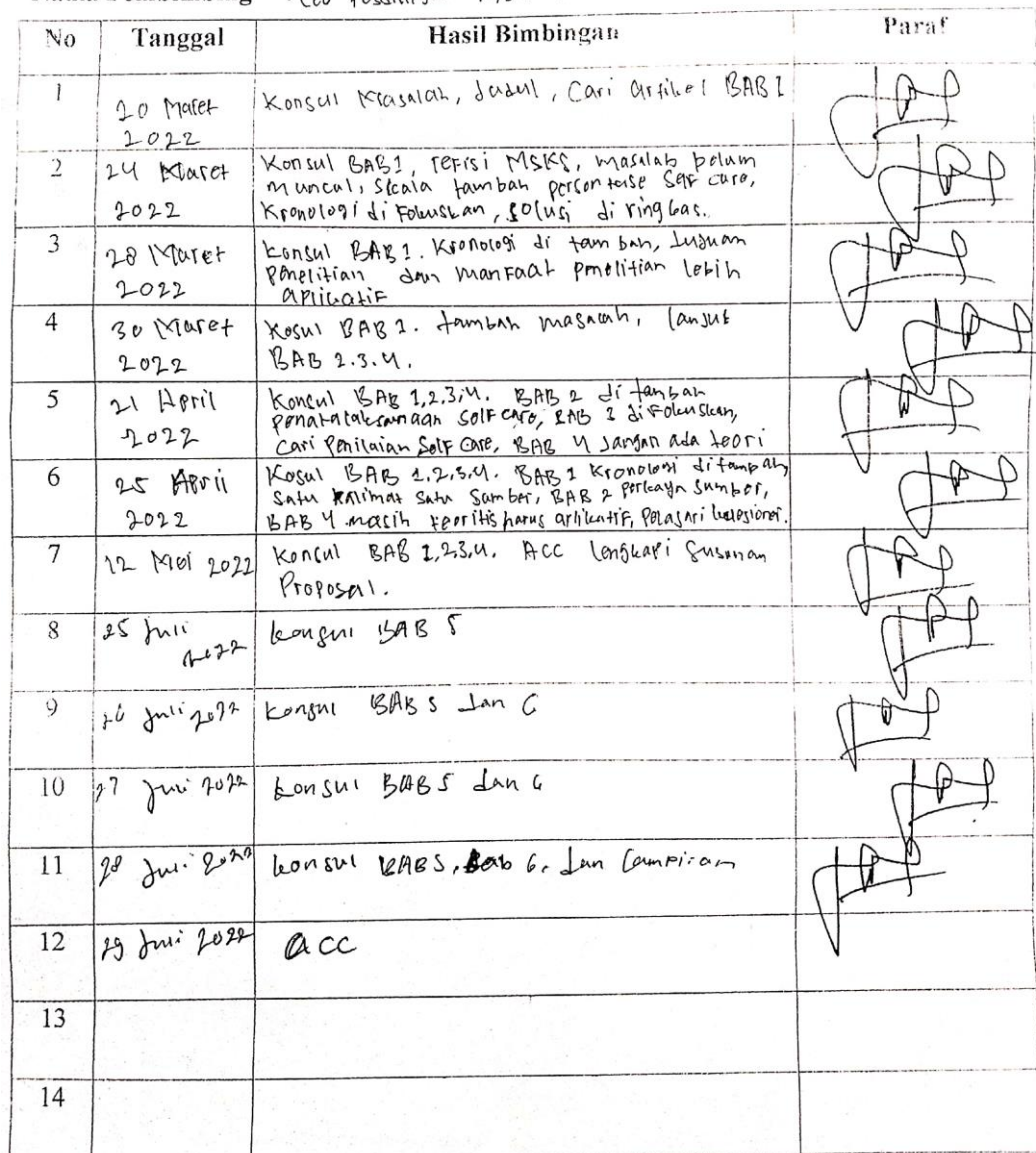 No Tanggal Hasil Bimbingan Paraf
1 20 Maret Konsul Masalah, Judul, Cari artikel BAB 1
2022
2 24 Maret Konsul BAB1, refisi MSKS, masalah belum
muncul, Skala tambah persentase Self care,
2022 Kronologi di Fokuskan, solusi di ringkas.
3 28 Maret Konsul BAB1. Kronologi di tambah, tujuan
2022 penelitian dan manfaat penelitian lebih
aplikatif
4 30 Maret Kosul BAB 1. tambah masalah, lanjut
2022 BAB 2.3.4.
5 21 April Konsul BAB 1,2,3,4. BAB 2 di tambah
2022 penatalaksanaan Self care, BAB 1 di Fokuskan,
Cari Penilaian Self Care, BAB 4 Jangan ada teori
6 25 April Kosul BAB 1.2.3.4. BAB 1 Kronologi ditambah,
2022 Satu kalimat satu Sumber, BAB 2 perkaya Sumber,
BAB 4 masih teoritis harus aplikatif, Pelajari
7 12 Mei 2022 Konsul BAB 1,2,3,4. ACC lengkapi Susunan
Proposal.
8 25 Juli Konsul BAB 5
2022
9 26 Juli 2022 Konsul BAB 5 dan 6
10 27 Juli 2022 Konsul BAB 5 dan 6
11 28 Juli 2022 Konsul BAB 5, Bab 6, dan Lampiran
12 29 Juli 2022 ACC
13
14